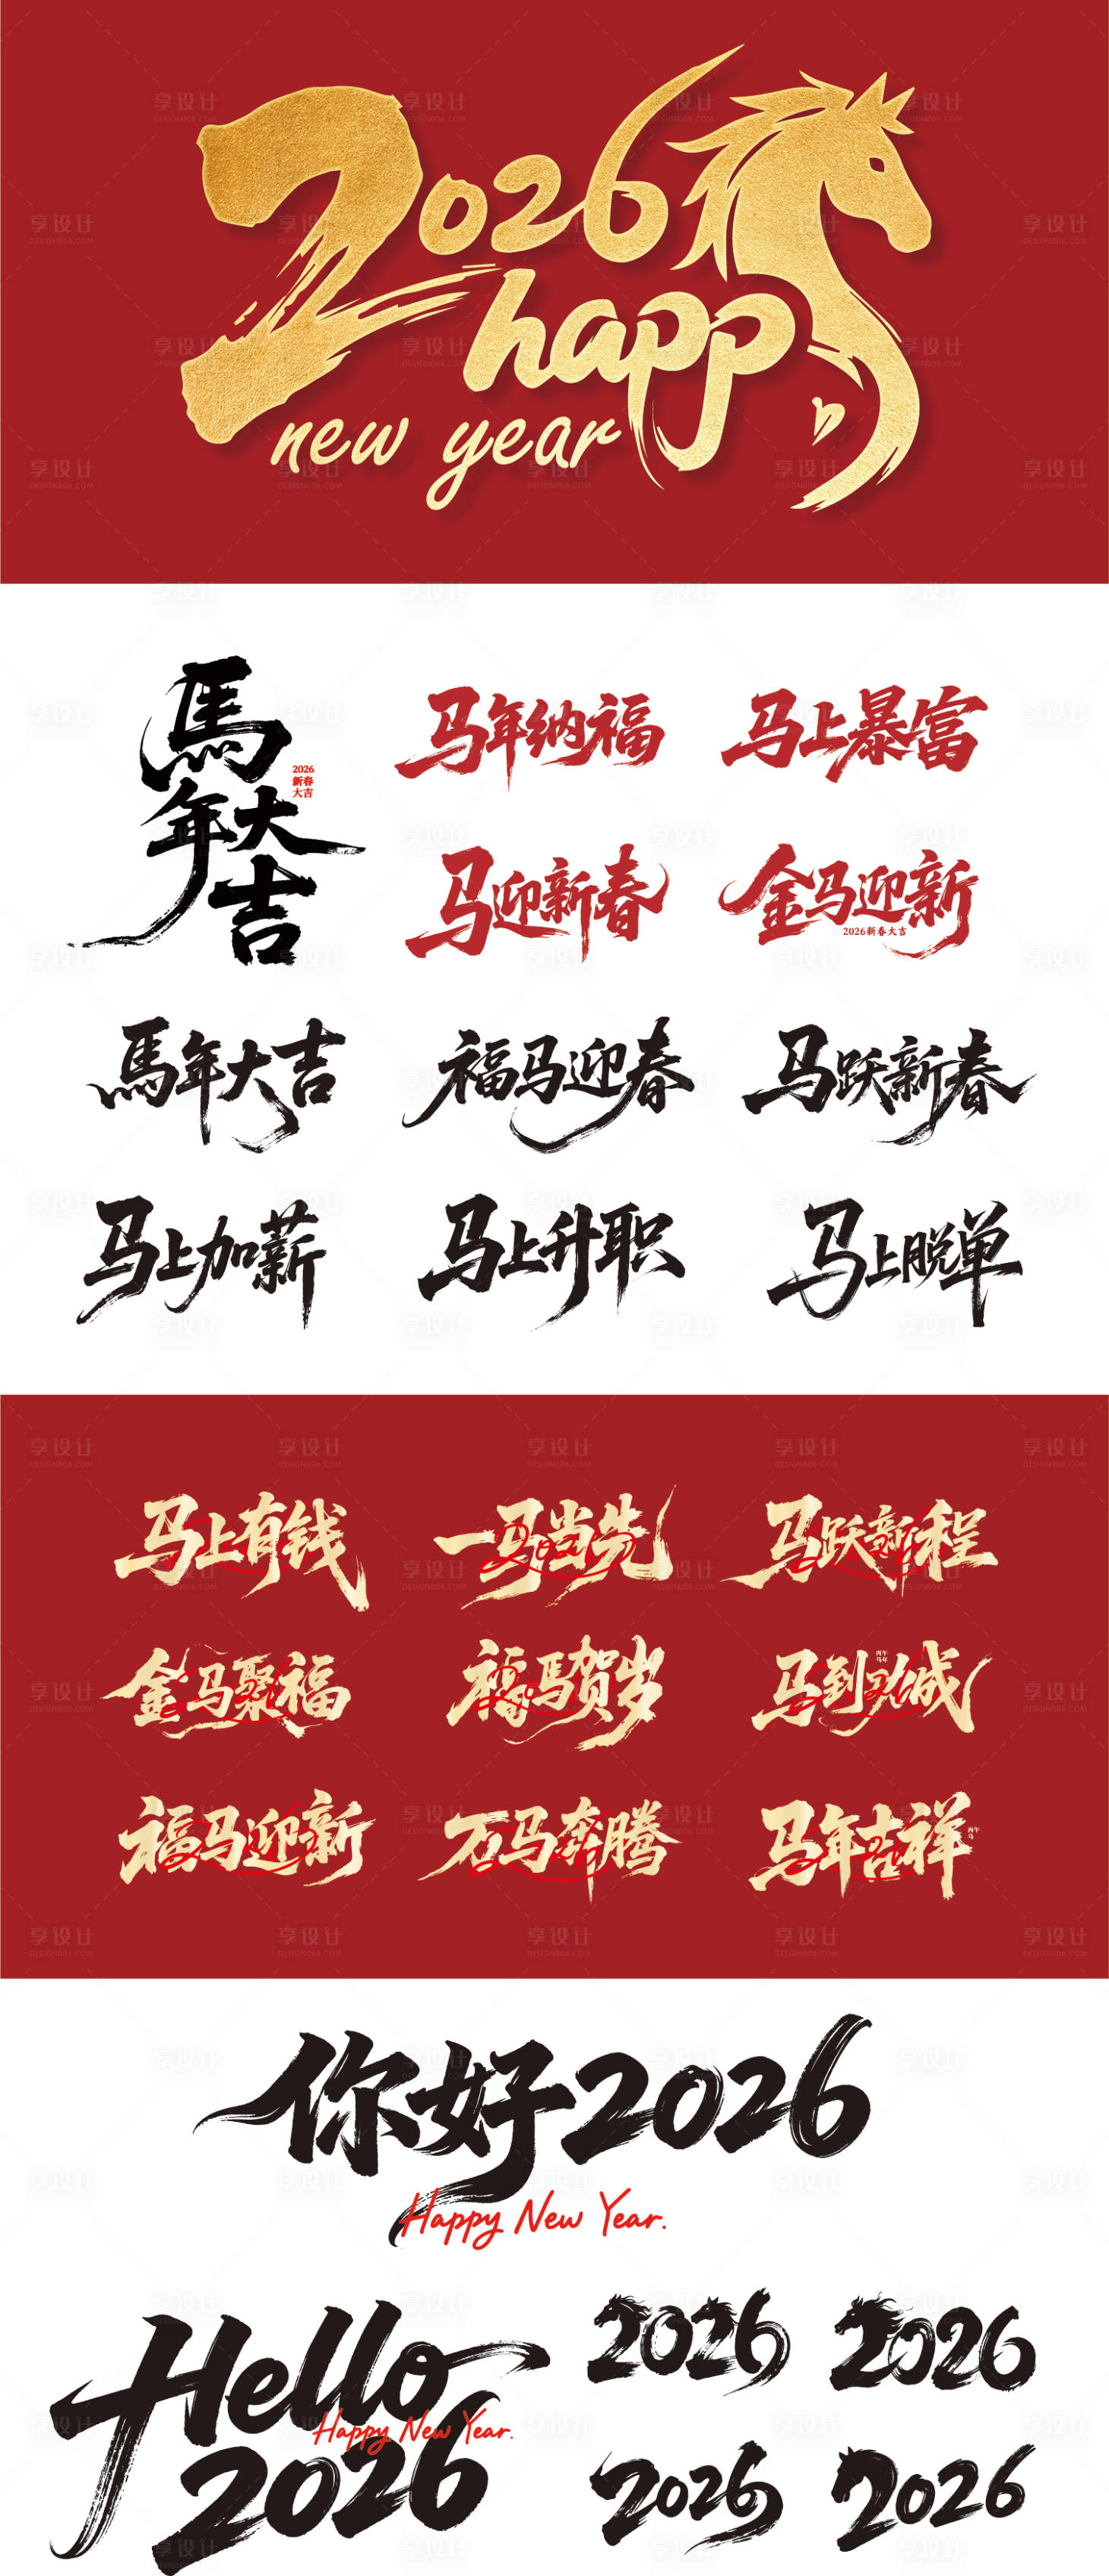 2026
happy
new year
馬年大吉
2026
新春
大吉
马年纳福
马上暴富
马迎新春
金马迎新
2026新春大吉
馬年大吉
福马迎春
马跃新春
马上加薪
马上升职
马上脱单
马上有钱
一马当先
马跃新程
金马聚福
福馬贺岁
马到功成
丙午
马年
福马迎新
万马奔腾
马年吉祥
丙午
马
你好2026
Happy New Year.
Hello
Happy New Year.
2026
2026
2026
2026
2026
享设计
DESIGN006.COM